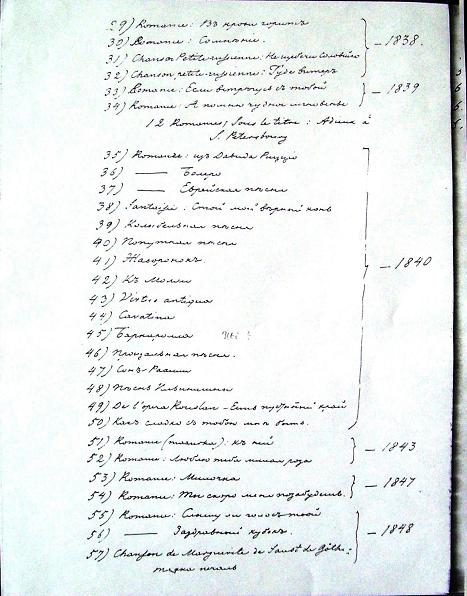 29) Romance: Въ крови горитъ
30) Romance: Сомнѣніе. – 1838.
31) Chanson Petite-russienne: Не щебечи соловейко
32) Chanson petite-russienne: Гуде витеръ
33) Romance: Если встрѣчусь съ тобой – 1839
34) Romance: Я помню чудное мгновенье
12 Romances, sous le titre: Adieux à
S. Petersbourg
35) Romance: изъ Давида Риццiо
36) —— Болеро
37) —— Еврейская пѣсня
38) Fantaisie: Стой мой вѣрный конь
39) Колыбельная пѣсня
40) Попутная пѣсня
41) Жаворонокъ. – 1840
42) Къ Молли
43) Virtus antiqua
44) Cavatina
45) Баркаролла
46) Прощальная пѣсня.
47) Сонъ-Рахили
48) Пѣснь Ильинишны
49) De l'opéra Rouslan - Есть пустынный край
50) Какъ сладко съ тобою мнѣ быть.
51) Romance (mazurka): къ ней – 1843
52) Romance: Люблю тебя милая роза
53) Romance: Милочка – 1847
54) Romance: Ты скоро меня позабудешь.
55) Romance: Слышу ли голосъ твой
56) —— Заздравный кубокъ. – 1848
57) Chanson de Marguerite de Faust de Göthe:
тяжка печаль